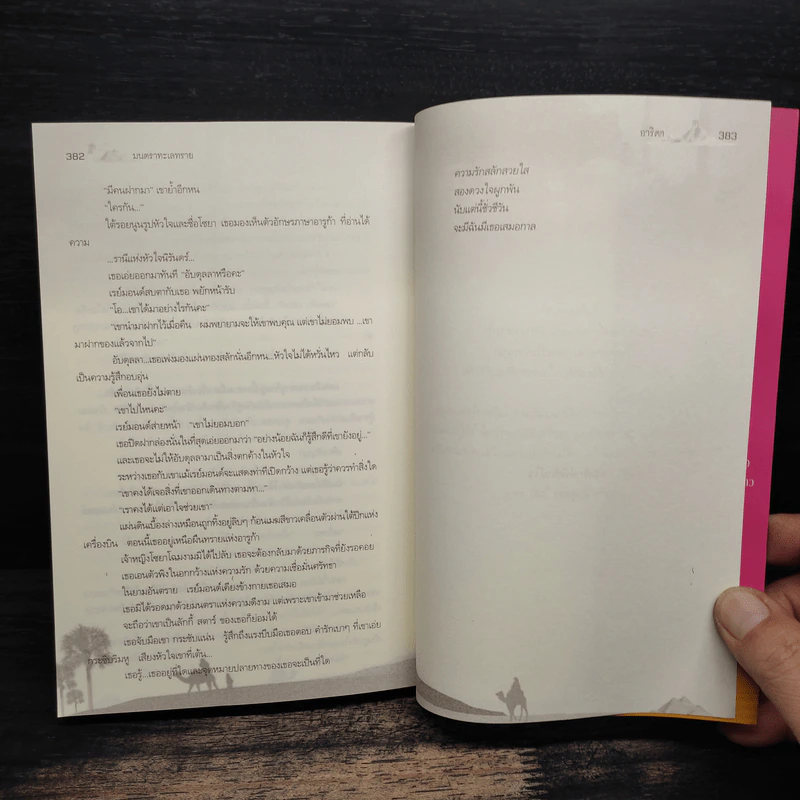 382 มนตราทะเลทราย
"มีคนฝากมา" เขาย้ำอีกหน
"ใครกัน..."
ใต้รอยนูนรูปหัวใจและชื่อโซยา เธอมองเห็นตัวอักษรภาษาอารูก้า ที่อ่านได้
ความ
...รานีแห่งหัวใจนิรันดร์...
เธอเอ่ยออกมาทันที "อับดุลลาหรือคะ"
เรย์มอนด์สบตากับเธอ พยักหน้ารับ
"โอ...เขาได้มาอย่างไรกันคะ"
"เขานำมาฝากไว้เมื่อคืน ผมพยายามจะให้เขาพบคุณ แต่เขาไม่ยอมพบ ...เขา
มาฝากของแล้วจากไป"
อับดุลลา...เธอเพ่งมองแผ่นทองสลักนั่นอีกหน...หัวใจไม่ได้หวั่นไหว แต่กลับ
เป็นความรู้สึกอบอุ่น
เพื่อนเธอยังไม่ตาย
"เขาไปไหนคะ"
เรย์มอนด์ส่ายหน้า "เขาไม่ยอมบอก"
เธอปิดฝากล่องนั่นในที่สุดเอ่ยออกมาว่า "อย่างน้อยฉันก็รู้สึกดีที่เขายังอยู่..."
และเธอจะไม่ให้อับดุลลามาเป็นสิ่งตกค้างในหัวใจ
ระหว่างเธอกับเขาแม้เรย์มอนด์จะแสดงท่าทีเปิดกว้าง แต่เธอรู้ว่าควรทำสิ่งใด
"เขาคงได้เจอสิ่งที่เขาออกเดินทางตามหา..."
"เราคงได้แต่เอาใจช่วยเขา"
แผ่นดินเบื้องล่างเหมือนถูกทิ้งอยู่ลิบๆ ก้อนเมฆสีขาวเคลื่อนตัวผ่านใต้ปีกแห่ง
เครื่องบิน ตอนนี้เธออยู่เหนือผืนทรายแห่งอารูก้า
เจ้าหญิงโซยาโฉมงามมิได้ไปลับ เธอจะต้องกลับมาด้วยภารกิจที่ยังรอคอย
เธอเอนตัวพิงในอกกว้างแห่งความรัก ด้วยความเชื่อมั่นศรัทธา
ในยามอันตราย เรย์มอนด์เคียงข้างกายเธอเสมอ
เธอมิได้รอดมาด้วยมนตราแห่งความดีงาม แต่เพราะเขาเข้ามาช่วยเหลือ
จะถือว่าเขาเป็นลักกี้ สตาร์ ของเธอก็ย่อมได้
เธอจับมือเขา กระชับแน่น รู้สึกถึงแรงบีบมือเธอตอบ คำรักเบาๆ ที่เขาเอ่ย
กระซิบริมหู เสียงหัวใจเขาที่เต้น...
เธอรู้...เธออยู่ที่ใดและจุดหมายปลายทางของเธอจะเป็นที่ใด
อาริตา 383
ความรักสลักสวยใส
สองดวงใจผูกพัน
นับแต่นี้ชั่วชีวัน
จะมีฉันมีเธอเสมอกาล